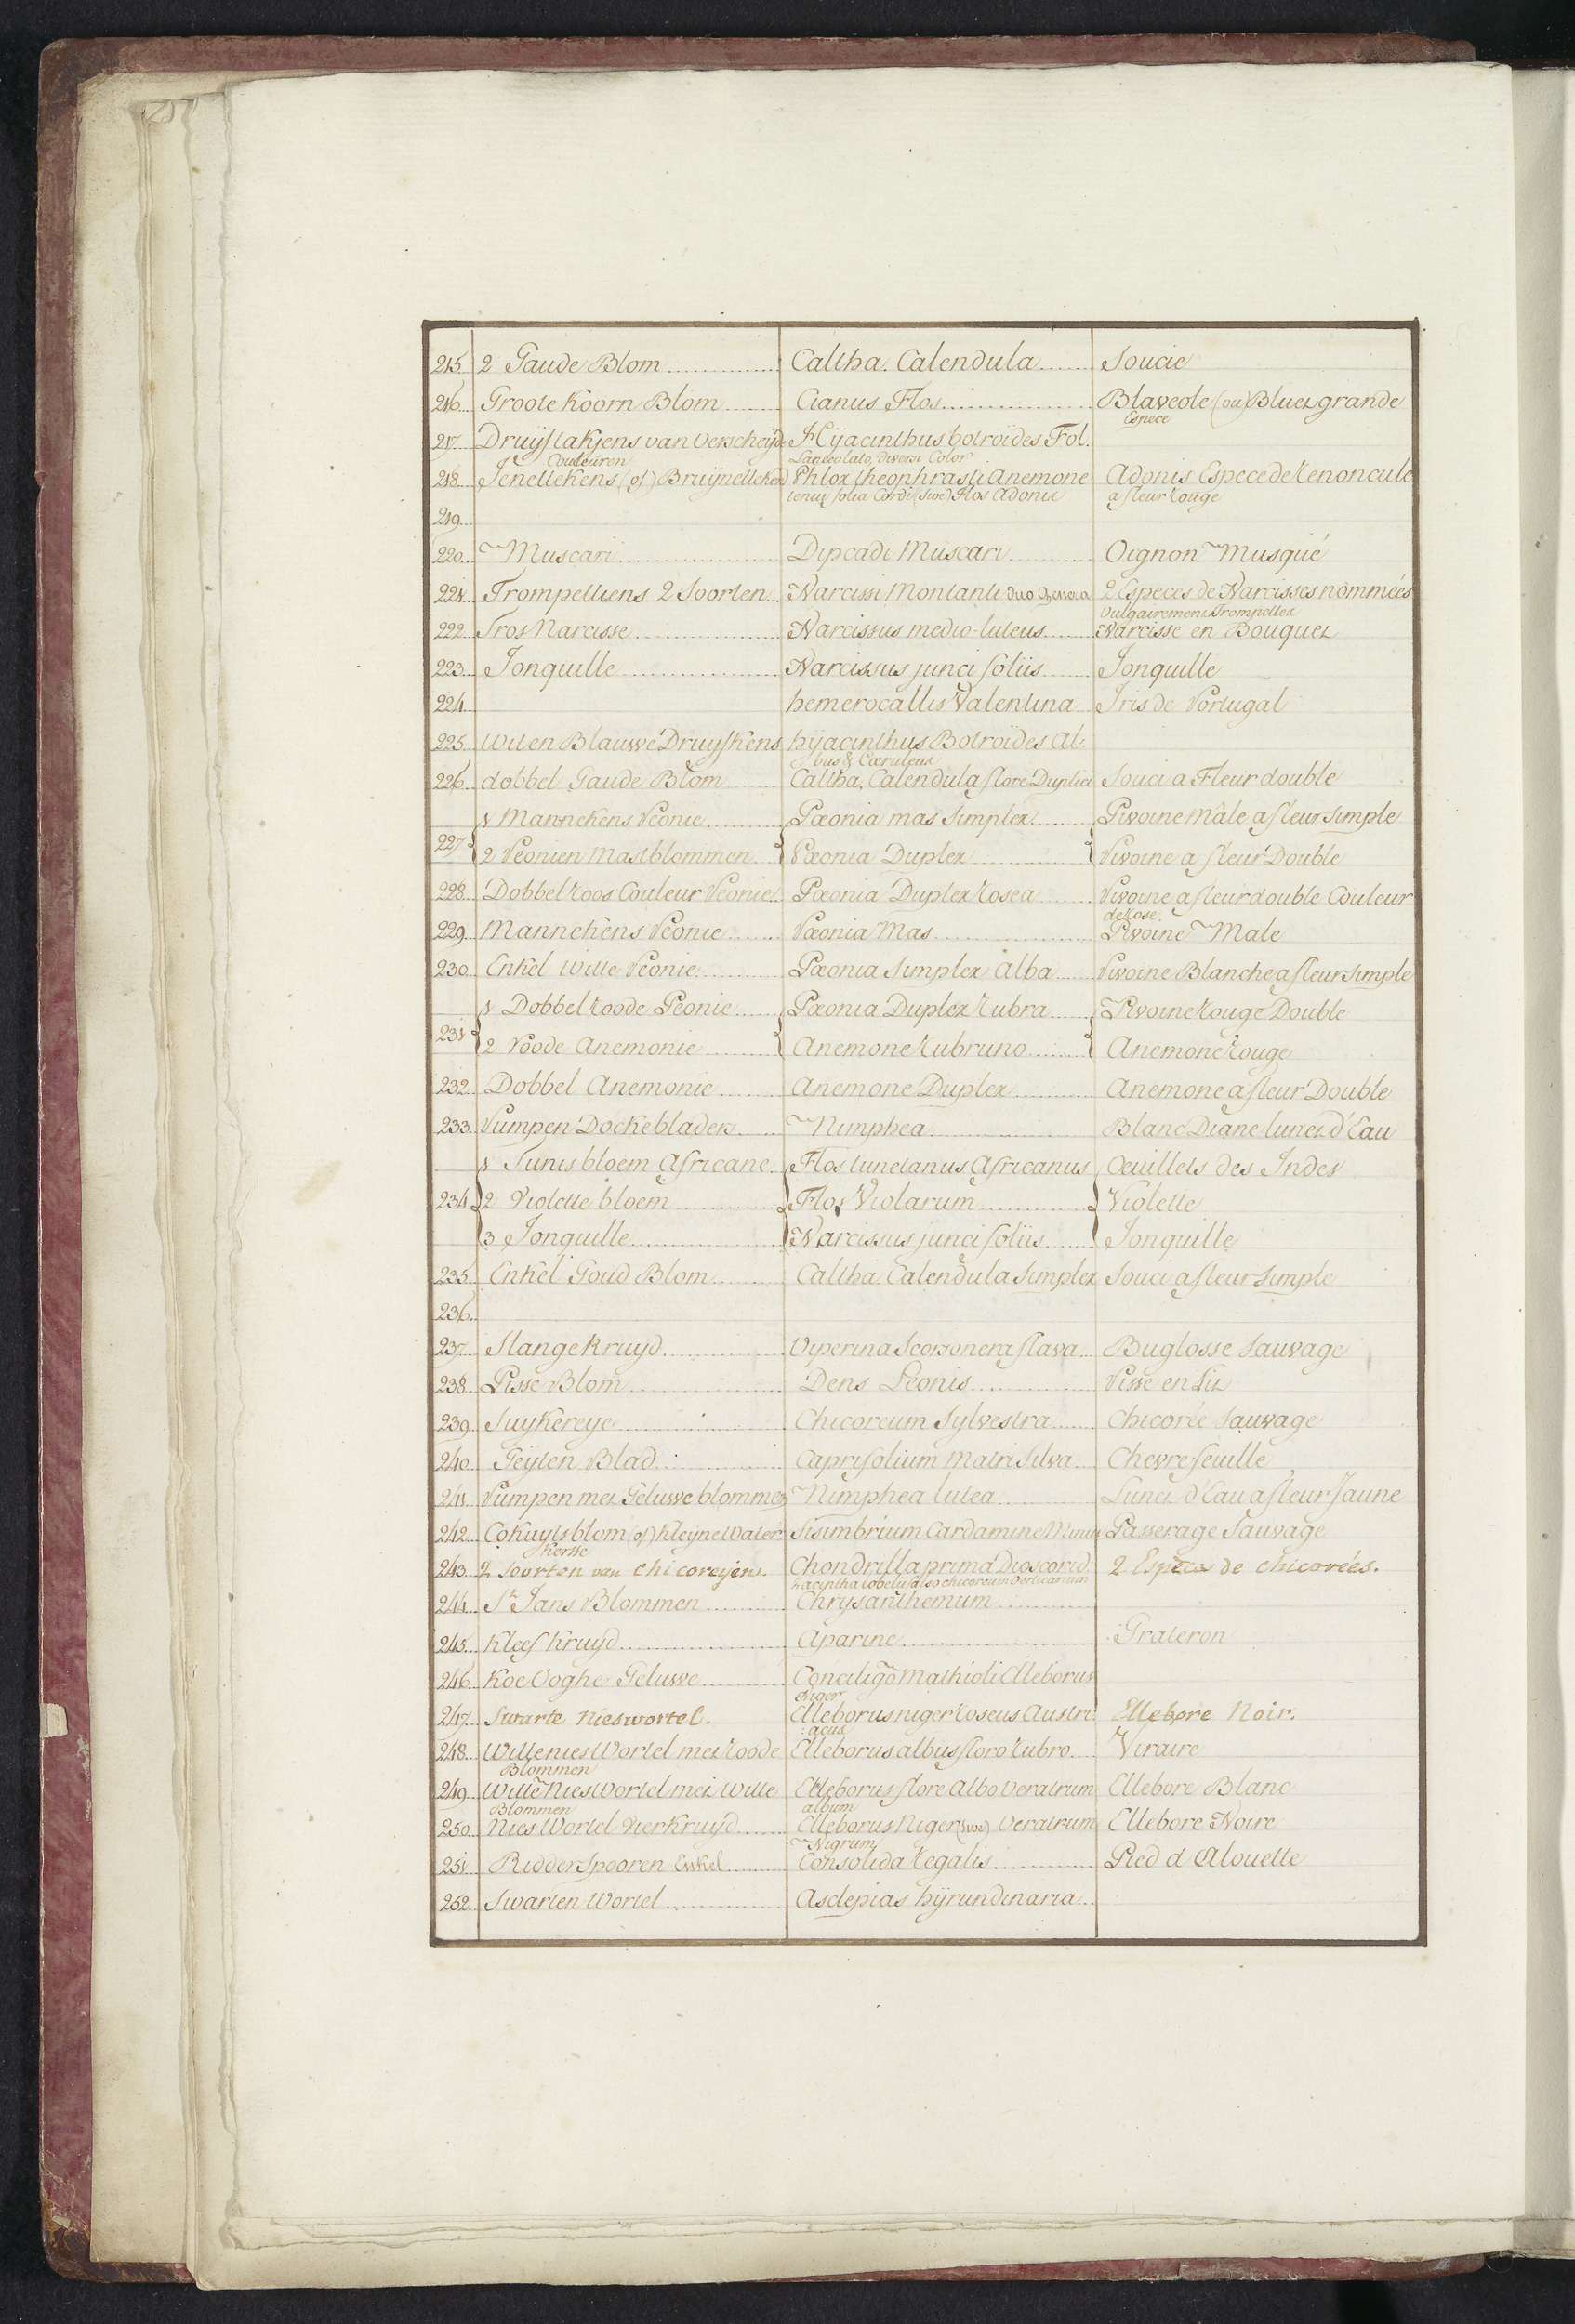 215. 2 Gaude Blom Caltha. Calendula Soucie
216. Groote Koorn Blom Cianus Flos Blaveole (ou) Bluet grande
Espece
217. Druijstakjens van Verscheijde Hijacinthus botroïdes Fol.
Couleuren Lanceolato, diversi Color
218. Jenettekens (of) Bruijnettekens Phlox theophrasti Anemone Adonis Espece de Renoncule
tenui folia Cordi (sive) Flos Adonis a fleur Rouge
219.
220. Muscari Dipcadi Muscari Oignon Musqué
221. Trompettiens 2 Soorten Narcissi Montanti duo Genera 2 Especes de Narcisses nommées
Vulgairement Trompettes
222. Tros Narcisse Narcissus medio-luteus Narcisse en Bouquet
223. Jonquille Narcissus junci foliis Jonquille
224. hemerocallis Valentina Iris de Portugal
225. Wit en Blauwe Druijfkens hijacinthus Botroïdes al:
bus & Cæruleus
226. dobbel Gaude Blom Caltha. Calendula flore Duplici Souci a Fleur double
1 Mannekens Peonie Pæonia mas Simplex Pivoine Mâle a fleur Simple
227 2 Peonien Mastblommen Pæonia Duplex Pivoine a fleur Double
228. Dobbel Roos Couleur Peonie Pæonia Duplex Rosea Pivoine a fleur double Couleur
de Rose.
229. Mannekens Peonie Pæonia Mas Pivoine Male
230. Enkel Witte Peonie Pæonia Simplex Alba Pivoine Blanche a fleur Simple
1 Dobbel Roode Peonie Pæonia Duplex Rubra Pivoine Rouge Double
231 2 Roode Anemonie Anemone Rubruno Anemone Rouge
232. Dobbel Anemonie Anemone Duplex Anemone a fleur Double
233. Pumpen Dockebladers Nimphea Blanc Diane lunet d'Eau
1 Tunis bloem Africane Flos tunetanus Africanus Oeuillets des Indes
234 2 Violette bloem Flos Violarum Violette
3 Jonquille Narcissus junci foliis Jonquille
235. Enkel Goud Blom Caltha. Calendula Simplex Souci a fleur Simple
236.
237. Slange Kruyd Viperina Scorsonera flava Buglosse Sauvage
238. Pisse Blom Dens Leonis Pisse en Lit
239. Suykereye Chicoreum Sylvestra Chicorée Sauvage
240. Geyten Blad Caprifolium Matri Silva Chevrefeuille
241. Pumpen met Geluwe blommen Nimphea lutea Lunet d'Eau a fleur Jaune
242. Cokuytsblom (of) Kleyne Water Sisimbrium Cardamine Minus Passerage Sauvage
Kersse
243. 2 Soorten van Chicoreijen. Chondrilla prima Dioscorid. 2. Espèces de chicorées.
Zacintha lobelii also chicoreum Verrucarium
244. St. Jans Blommen Chrysanthemum
245. Kleef Kruyd Aparine Grateron
246. Koe Ooghe Geluwe Conciligo Mathioli Elleborus
Niger
247. Swarte Nieswortel. Elleborus niger Roseus Austri: Ellebore Noir.
:acus
248. Witte nies Wortel met Roode Elleborus albus floro Rubro Viraire
Blommen
249. Witte Nies Wortel met Witte Elleborus flore Albo Veratrum Ellebore Blanc
Blommen album
250. Nies Wortel Vierkruyd Elleborus Niger (sive) Veratrum Ellebore Noire
Nigrum
251. Ridder Spooren Enkel Consolida Regalis Pied d Alouette
252. Swarten Wortel Asclepias hÿrundinaria